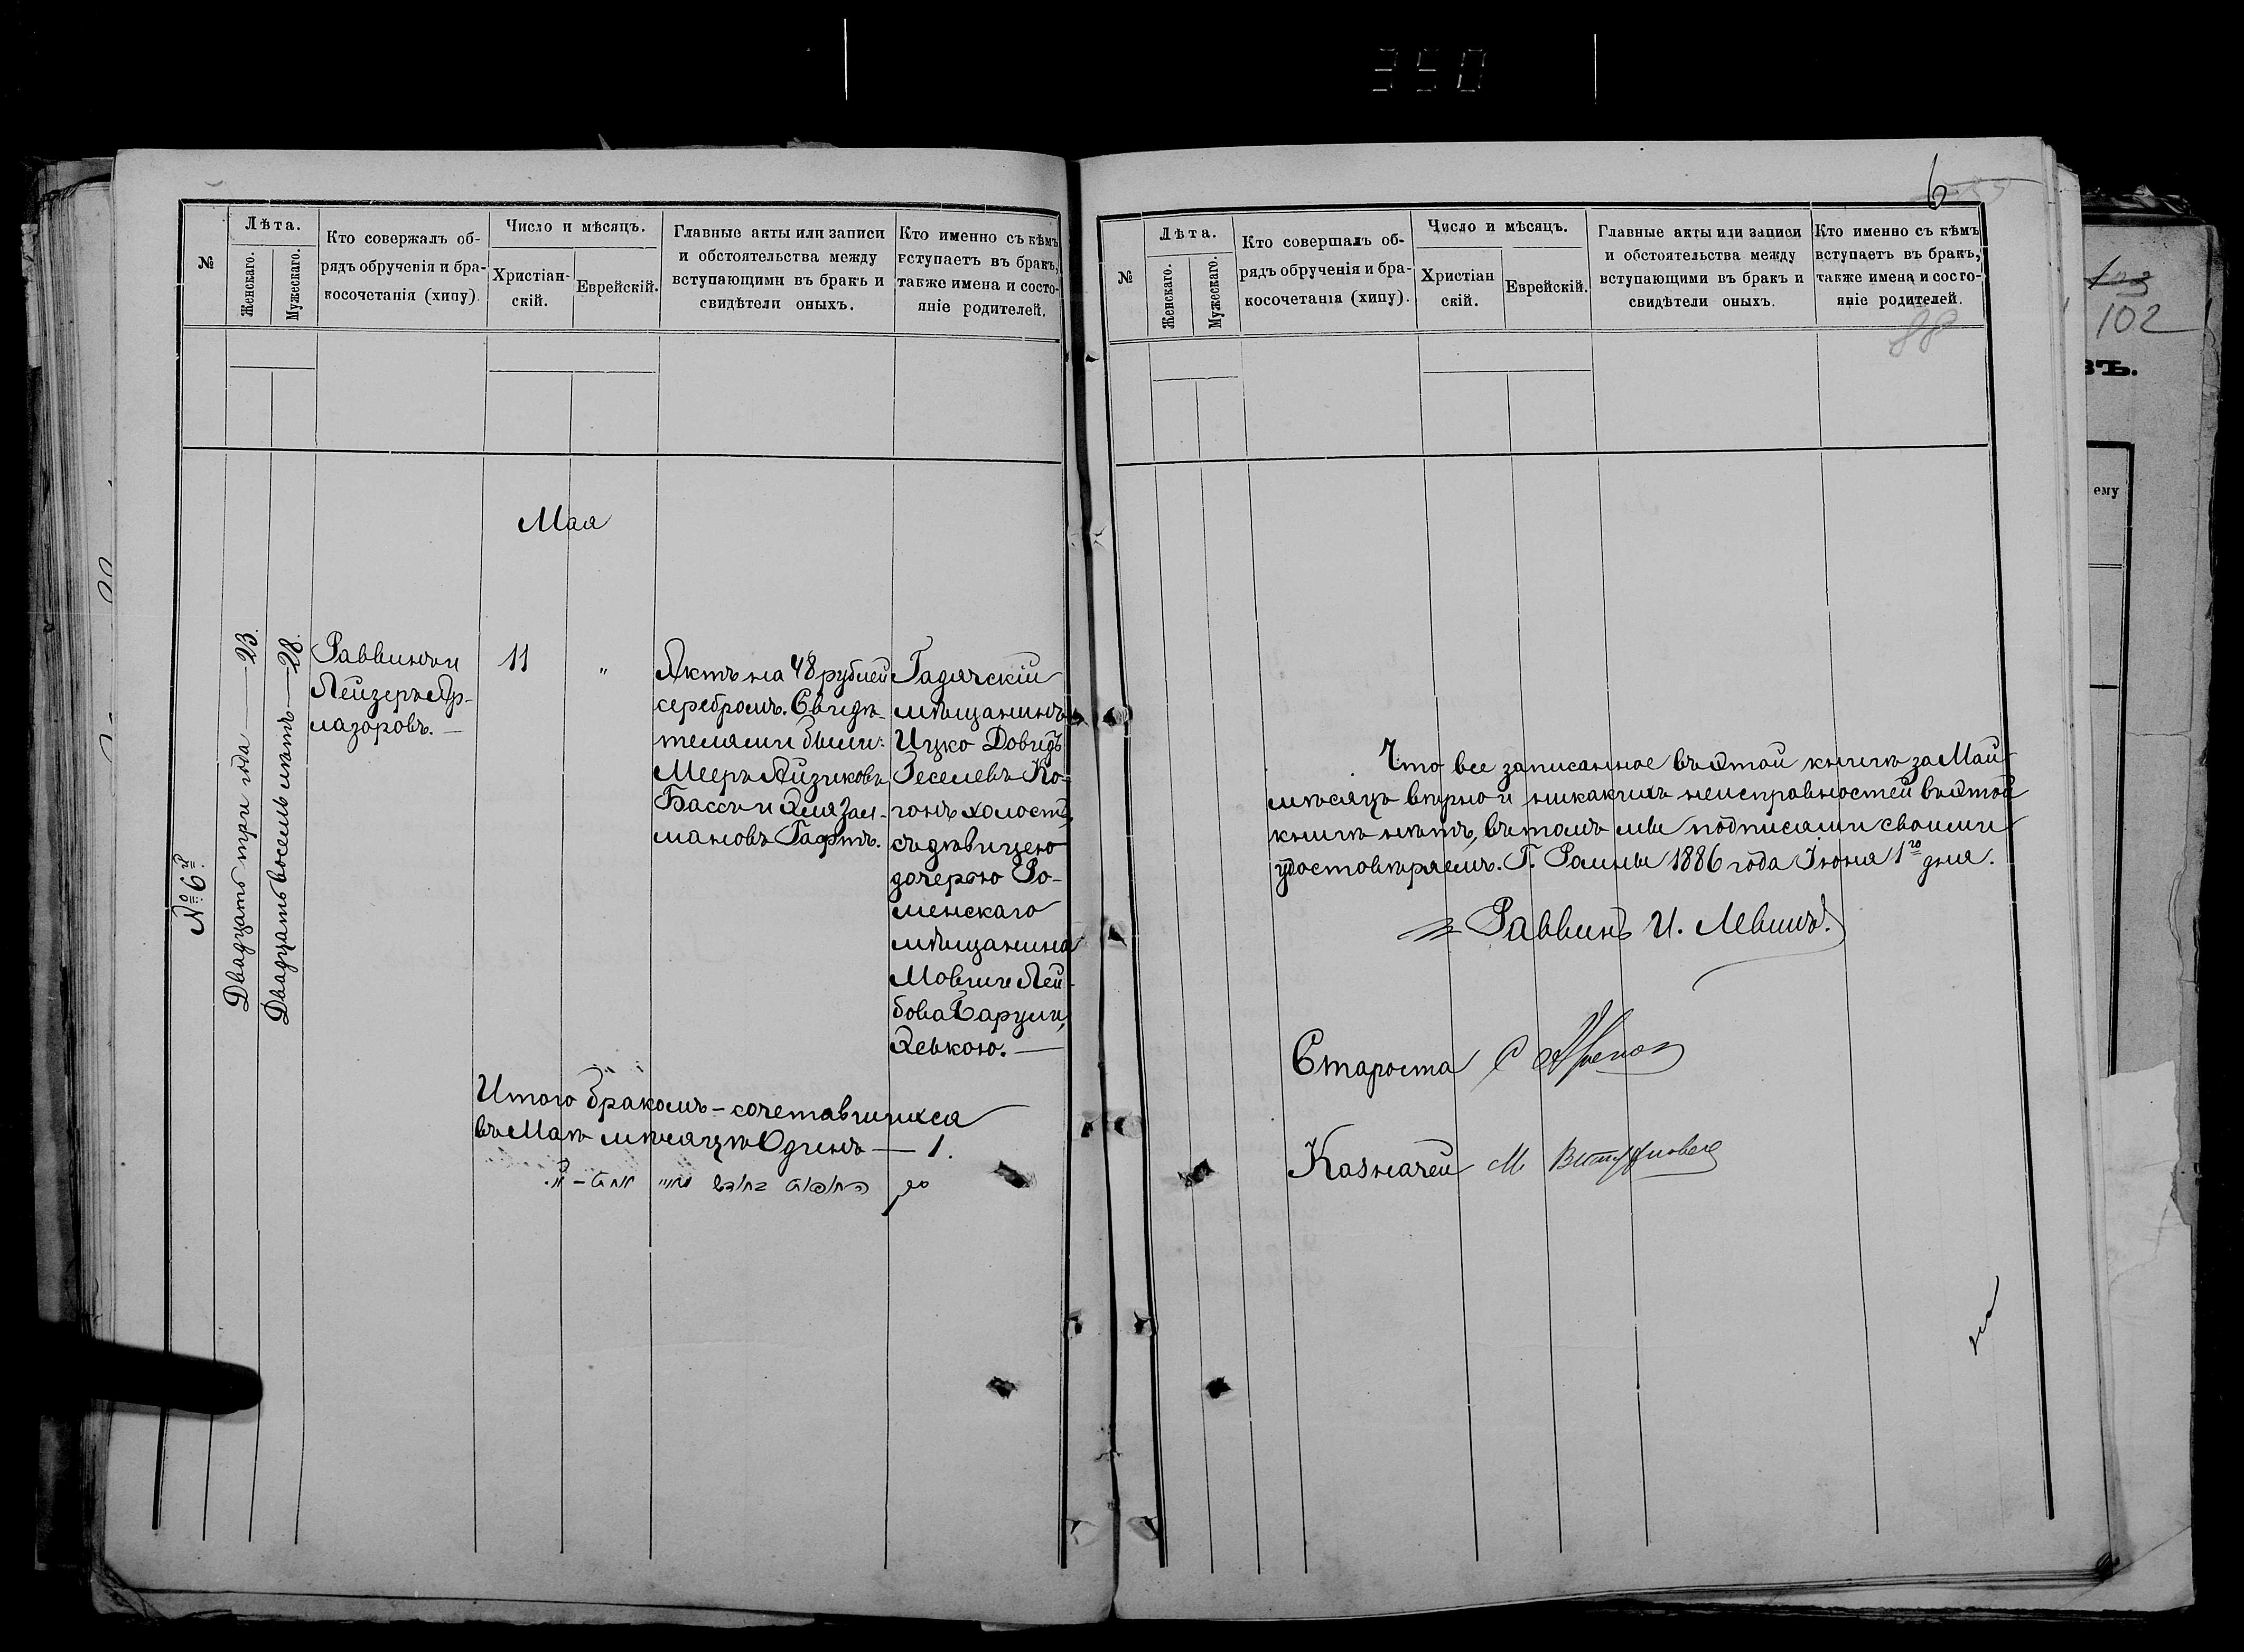 350
№
Лѣта.
Женскаго.
Мужескаго.
Кто совержалъ об-
рядъ обрученія и бра-
косочетанія (хипу).
Число и мѣсяцъ.
Христіан-
скій.
Еврейскій.
Главные акты или записи
и обстоятельства между
вступающими въ бракъ и
свидѣтели оныхъ.
Кто именно съ кѣмъ
вступаетъ въ бракъ,
также имена и состо-
яніе родителей.
Мая
№ 6й
Двадцать три года — 23.
Двадцать восемь лѣтъ — 28.
Раввинъ
Лейзеръ Ар-
лазоровъ. —
11
"
Актъ на 48 рублей
серебромъ. Свидѣ-
телями были:
Мееръ Айзиковъ
Бассъ и Эля Зал-
мановъ
Гадячскій
мѣщанинъ
Ицко Довидъ
Геселевъ Ко-
гонъ холостъ,
съ дѣвицею
дочерью Ро-
менскаго
мѣщанина
Мовши Лей-
бова
Хевкою. —
Итого бракомъ-сочетавшихся
въ Маѣ мѣсяцѣ Одинъ — 1.
6
№
Лѣта.
Женскаго.
Мужескаго.
Кто совершалъ об-
рядъ обрученія и бра-
косочетанія (хипу).
Число и мѣсяцъ.
Христіан
скій.
Еврейскій.
Главные акты или записи
и обстоятельства между
вступающими въ бракъ и
свидѣтели оныхъ.
Кто именно съ кѣмъ
вступаетъ въ бракъ,
также имена и состо-
яніе родителей.
88
Что все записанное въ этой книгѣ за Май
мѣсяцъ вѣрно и никакихъ неисправностей въ этой
книгѣ нѣтъ, въ томъ мы подписями своими
удостовѣряемъ. Г. Ромны 1886 года Іюня 1го дня.
Раввинъ И. Левинъ.
Староста
Казначей М
102
въ.
ему